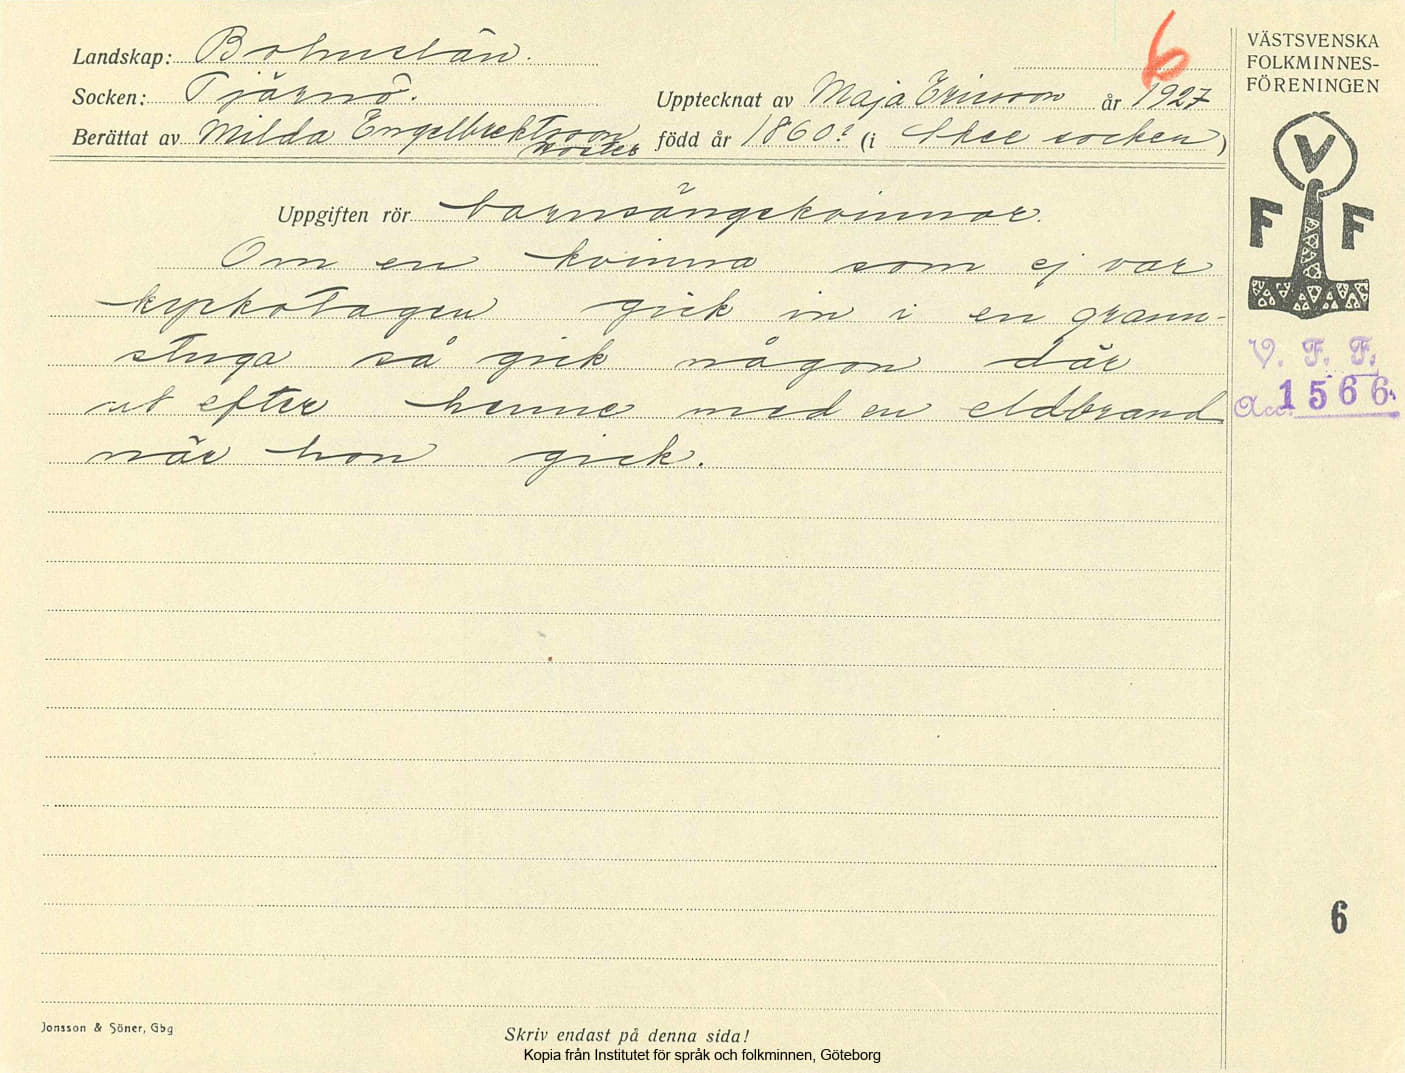 6
Landskap: Bohuslän.
Socken: Tjärnö. Upptecknat av Maja Ericson år 1927
Berättat av Milda Engelbrektsson född år 1860? (i Skee socken)
moster
Uppgiften rör barnsängskvinnor.
Om en kvinna som ej var
kyrkotagen gick in i en grann-
stuga så gick någon där
ut efter henne med en eldbrand
när hon gick.
VÄSTSVENSKA
FOLKMINNES-
FÖRENINGEN
V
F F
V. F. F.
Acc. 1566.
6
Jonsson & Söner, Gbg
Skriv endast på denna sida!
Kopia från Institutet för språk och folkminnen, Göteborg